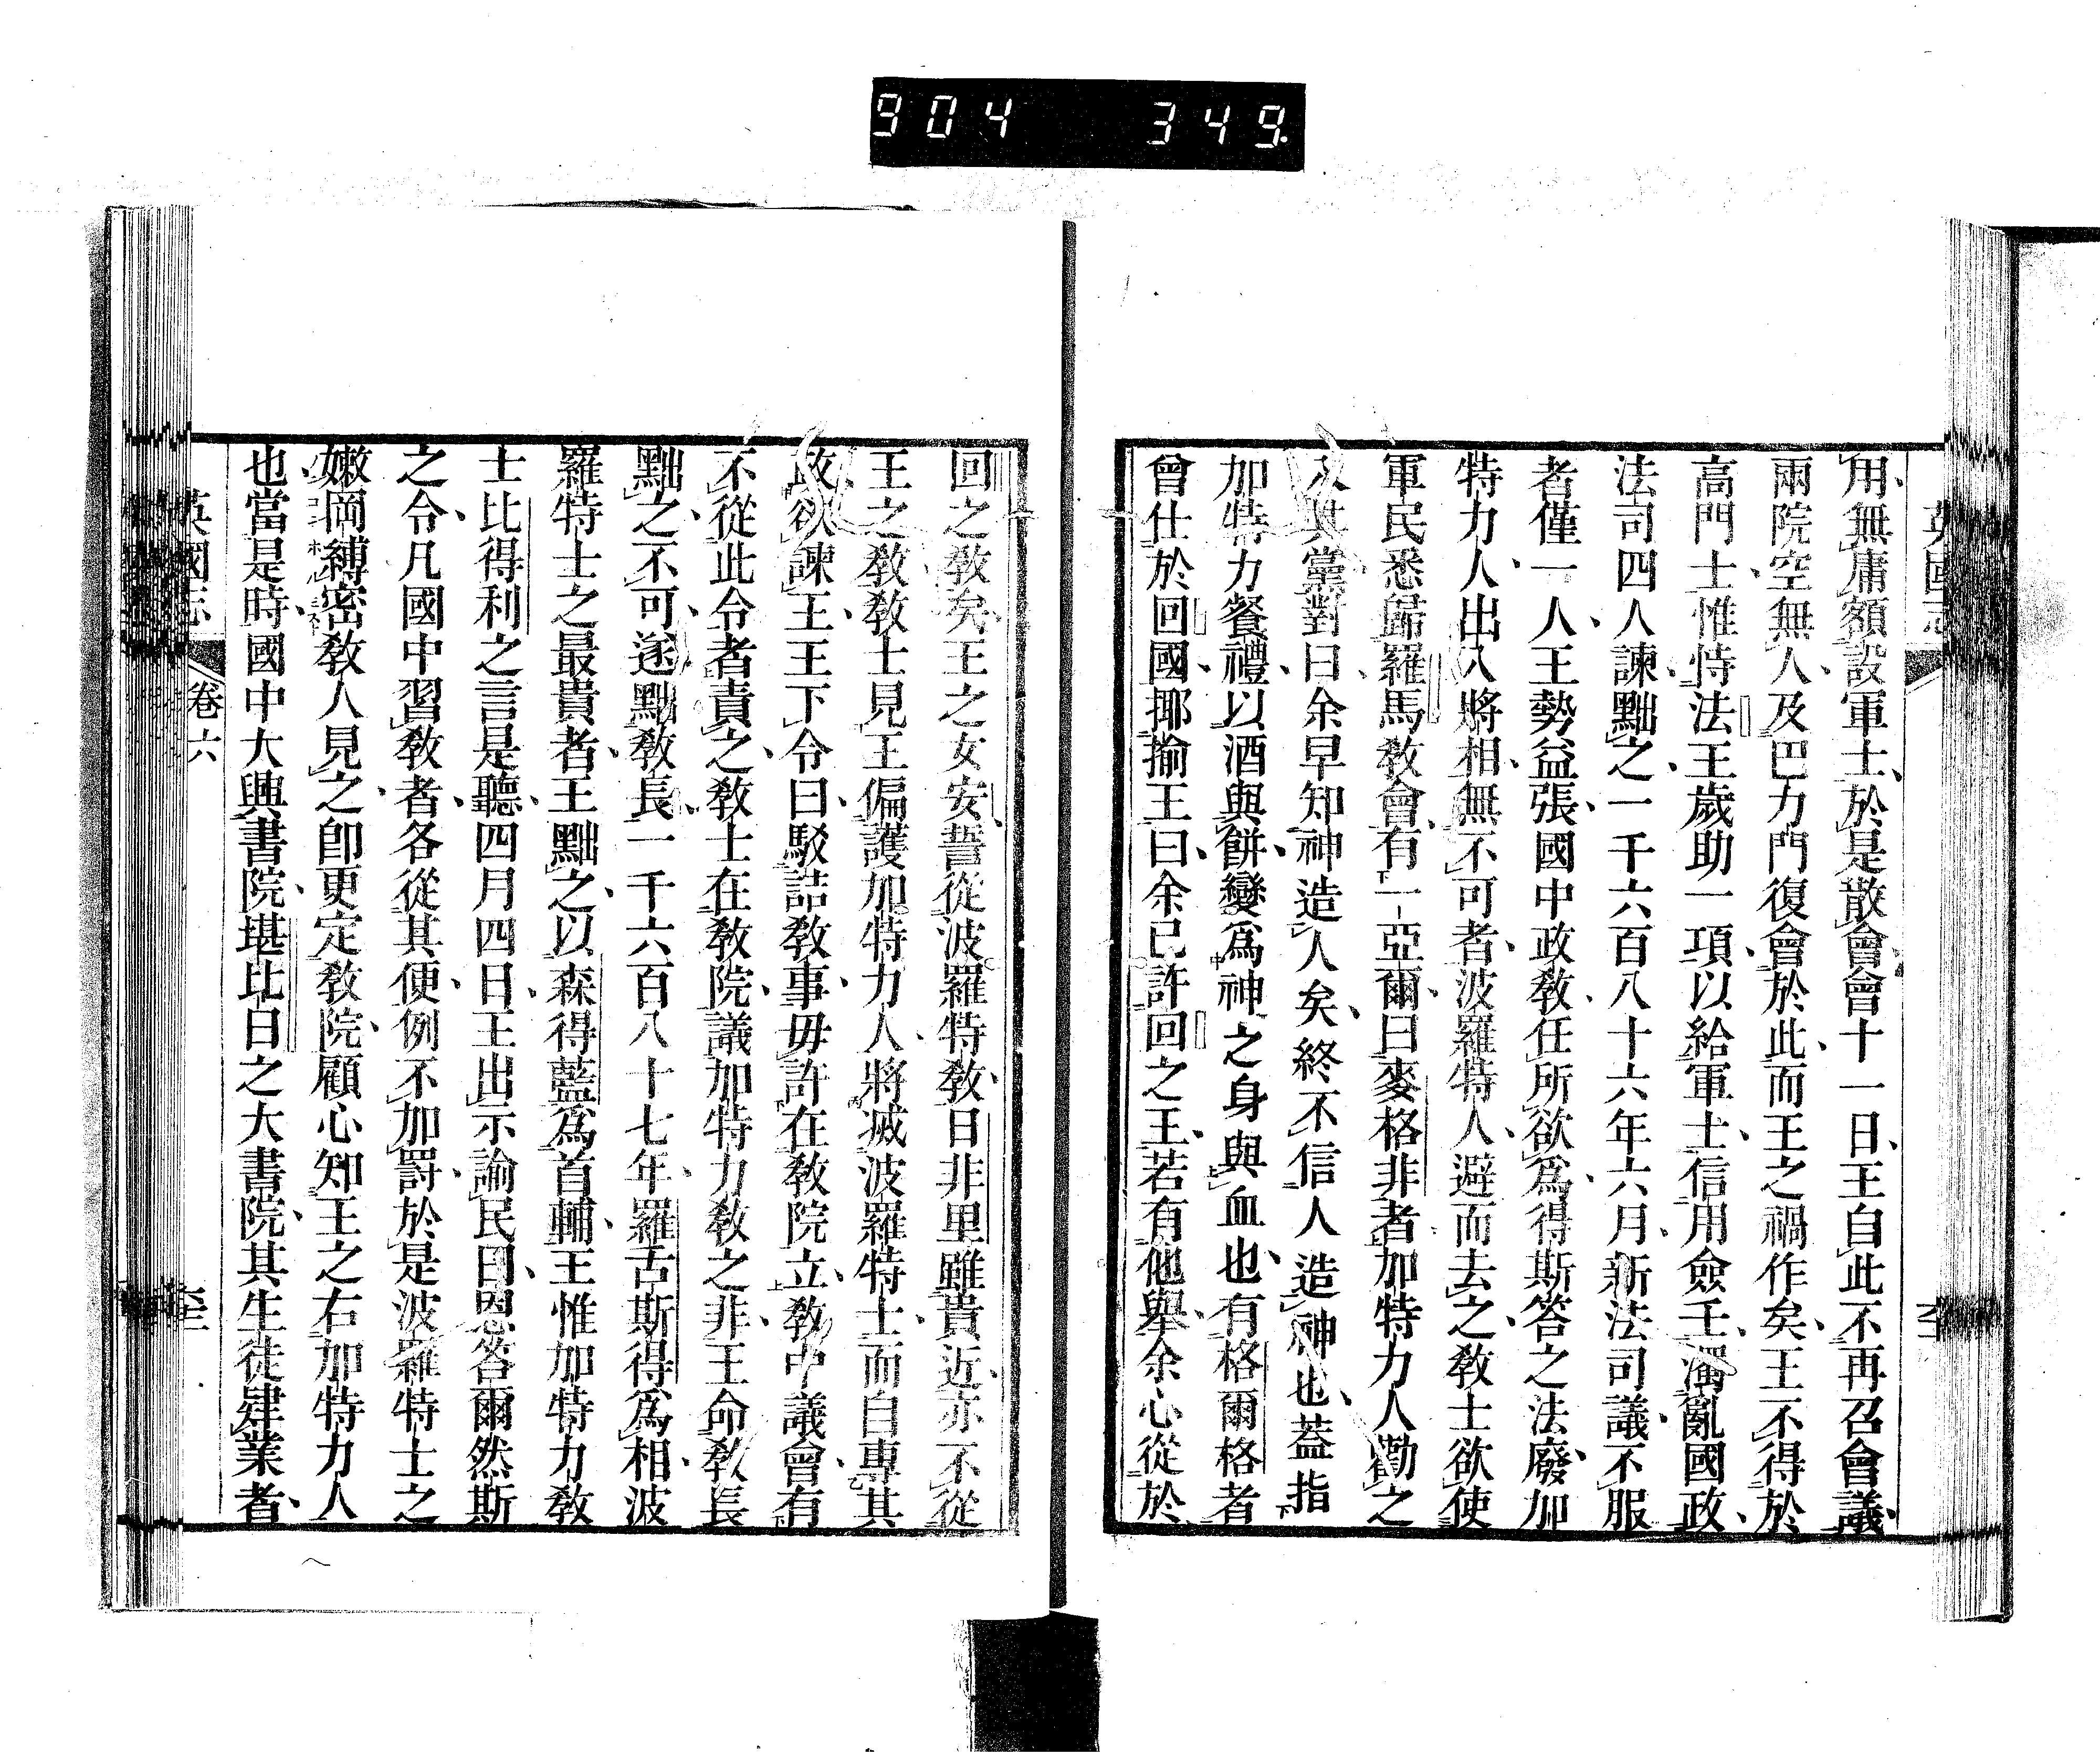 904 349
英國志
用無庸額設軍士於是散會會十一日王自此不再召會議
兩院空無人及巴力門復會於此而王之禍作矣王不得於
高門士惟恃法王歲助一項以給軍士信用僉壬濁亂國政
法司四人諫黜之一千六百八十六年六月新法司議不服
者僅一人王勢益張國中政敎任所欲爲得斯答之法廢加
特力人出入將相無不可者波羅特人避而去之敎士欲使
軍民悉歸羅馬敎會有一亞爾曰麥格非者加特力人勸之
入其黨對曰余早知神造人矣終不信人造神也蓋指
加特力餐禮以酒與餅變爲神之身與血也有格爾格者
曾仕於回國揶揄王曰余已許回之王若有他與余心從於
回之敎矣王之女安誓從波羅特敎日非里雖貴近亦不從
王之敎敎士見王偏護加特力人將滅波羅特士而自專其
政欲諫王王下令曰駁詰敎事毋許在敎院立敎中議會有
不從此令者責之敎士在敎院議加特力敎之非王命敎長
黜之不可遂黜敎長一千六百八十七年羅舌斯得爲相波
羅特士之最貴者王黜之以森得藍爲首輔王惟加特力敎
士比得利之言是聽四月四日王出示諭民曰恩答爾然斯
之令凡國中習敎者各從其便例不加罰於是波羅特士之
嫩岡縛密敎人見之卽更定敎院顧心知王之右加特力人
也當是時國中大興書院堪比日之大書院其生徒肄業者
英國志
卷六